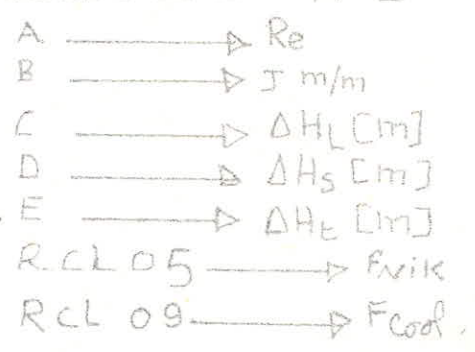 A → Re
B → J m/m
C → ΔHL [m]
D → ΔHs [m]
E → ΔHt [m]
RCL 05 → Fvik
RCL 09 → Fcool.